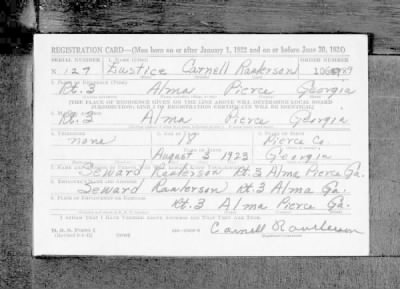 REGISTRATION CARD—(Men born on or after January 1, 1922 and on or before June 30, 1924)
SERIAL NUMBER 1. NAME (Print) ORDER NUMBER
N 127 Eustice Carnell Raulerson
2. PLACE OF RESIDENCE (Print)
Rt. 3 Alma Pierce Georgia
[THE PLACE OF RESIDENCE GIVEN ON THE LINE ABOVE WILL DETERMINE LOCAL BOARD
JURISDICTION; LINE 2 OF REGISTRATION CERTIFICATE WILL BE IDENTICAL]
Rt. 3 Alma Pierce Georgia
4. TELEPHONE 5. AGE IN YEARS 6. PLACE OF BIRTH
none 18 Pierce Co.
DATE OF BIRTH
August 3 1923 Georgia
Seward Raulerson Rt. 3 Alma Pierce Ga.
8. EMPLOYER'S NAME AND ADDRESS
Seward Raulerson Rt. 3 Alma Ga.
9. PLACE OF EMPLOYMENT OR BUSINESS
Rt. 3 Alma Pierce Ga.
I AFFIRM THAT I HAVE VERIFIED ABOVE ANSWERS AND THAT THEY ARE TRUE.
D. S. S. Form 1
Carnell Raulerson